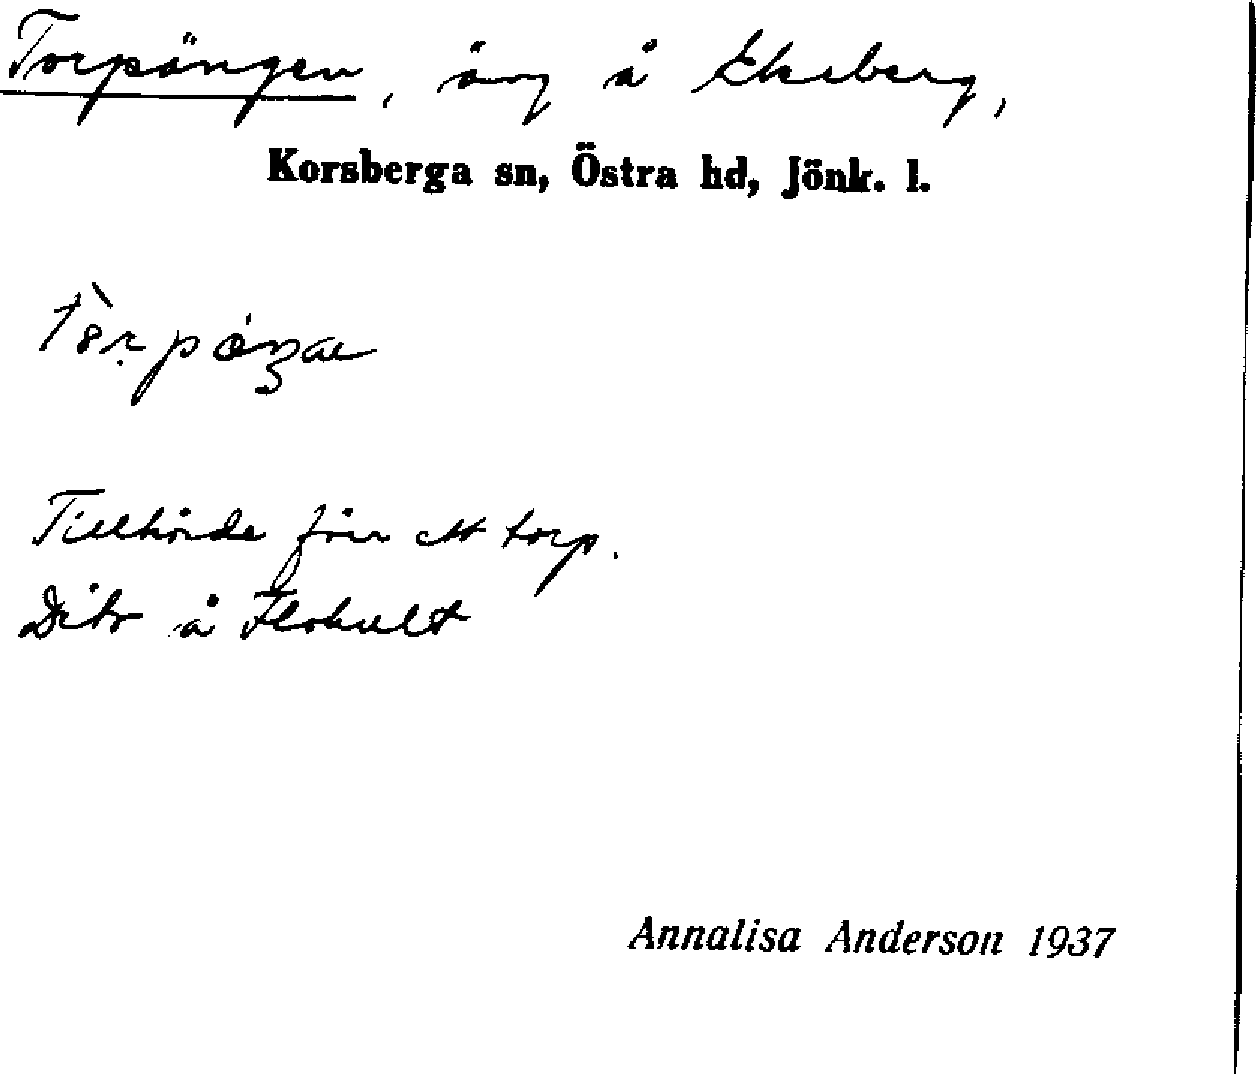 Torpängen, äng å Ekeberg,
Korsberga sn, Östra hd, Jönk. l.
Tillhörde förr ett torp.
Dito å Flokult
Annalisa Anderson 1937